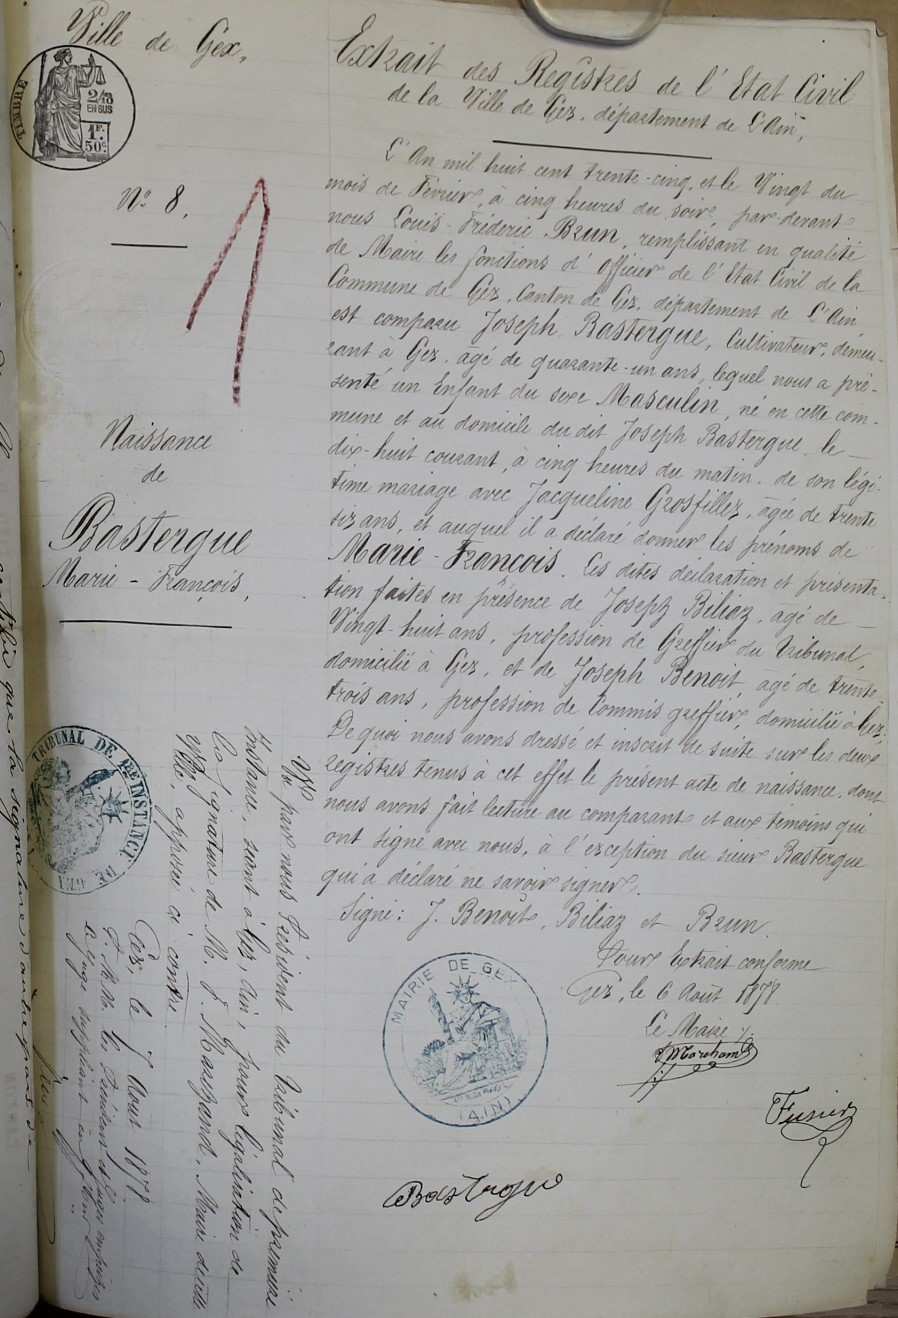 Ville de Gex,
TIMBRE
2/10
EN SUS
1F.
50c.
N° 8.
1
Naissance
de
Bastergue
Marie-François,
Extrait des Registres de l'Etat Civil
de la Ville de Gex, département de L'Ain,
L'An mil huit cent trente-cinq, et le Vingt du
mois de Février, à cinq heures du soir, par devant
nous Louis-Fréderic Brun, remplissant en qualité
de Maire les fonctions d'Officier de l'Etat Civil de la
Commune de Gex, Canton de Gex, département de L'Ain
est comparu Joseph Bastergue, Cultivateur, demeu-
rant à Gex, agé de quarante-un ans, lequel nous a pré-
senté un Enfant du sexe Masculin, né en cette com-
mune et au domicile du dit Joseph Bastergue, le
dix-huit courant, à cinq heures du matin, de son légi-
time mariage avec Jacqueline Grosfillez, agée de trente
six ans, et auquel il a déclaré donner les prénoms de
Marie-François. Ces dites declaration et présenta-
tion faites en présence de Joseph Biliaz, agé de
Vingt-huit ans, profession de Greffier du Tribunal,
domicilié à Gex, et de Joseph Benoit, agé de trente
trois ans, profession de Commis greffier, domicilié à Gex,
De quoi nous avons dressé et inscrit de suite sur les deux
registres tenus à cet effet le présent acte de naissance, dont
nous avons fait lecture au comparant et aux témoins qui
ont signé avec nous, à l'exception du sieur Bastergue
qui a déclaré ne savoir signer.
Signé: J. Benoit, Biliaz et Brun.
Pour Extrait conforme
Gex, le 6 Août 1878
Le Maire
Marchand
MAIRIE DE GEX
(AIN)
Fusier
Bastergue
Vu par nous Président du Tribunal de première
Instance, séant à Gex, Ain, pour légalisation de
la signature de M. J. Marchand, Maire de cette
Ville, apposée ci contre
Gex, le 7 Août 1878
TRIBUNAL DE 1ERE INSTANCE DE GEX
que la signature d'autre part de